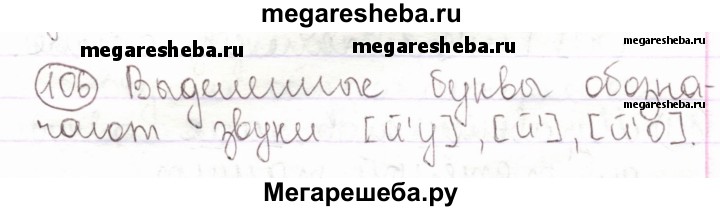 megaresheba.ru
megaresheba.ru
megaresheba.ru
106 Выделенные буквы обозна-
megaresheba.ru
чают звуки [й'у], [й'], [й'о].
megaresheba.ru
Мегарешеба.ру